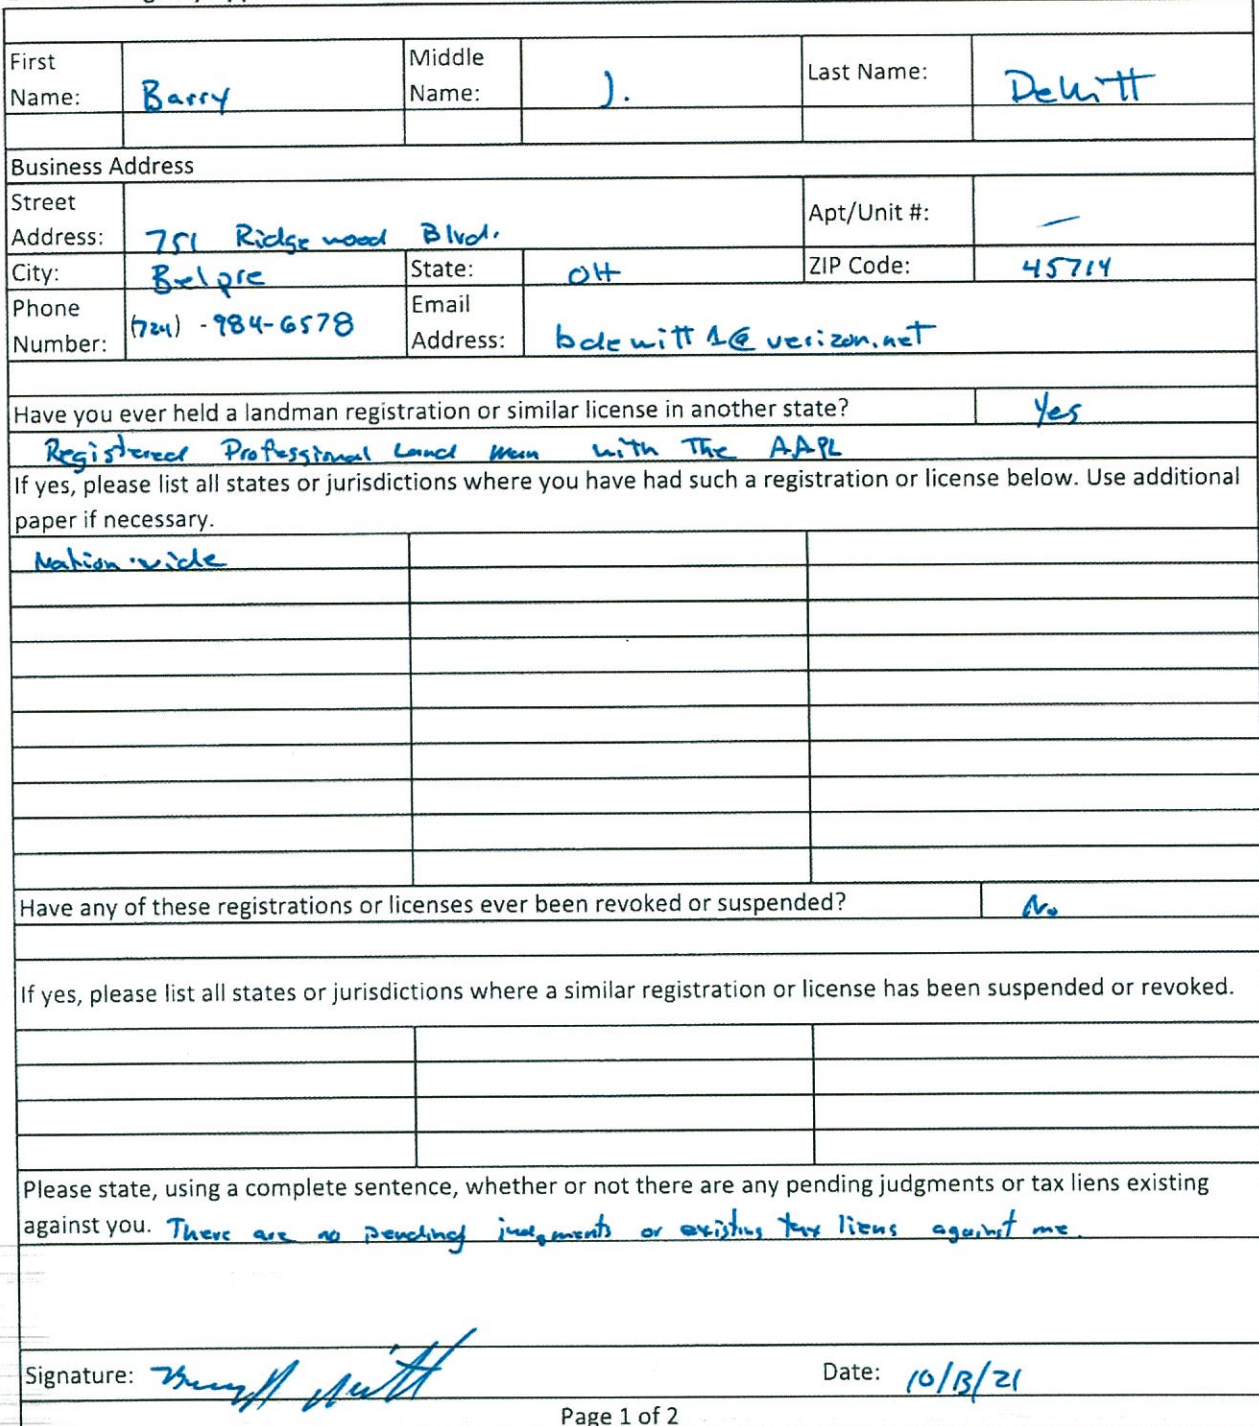 First Name: Barry Middle Name: J. Last Name: DeWitt
Business Address
Street Address: 751 Ridgewood Blvd. Apt/Unit #: —
City: Belpre State: OH ZIP Code: 45714
Phone Number: (724) - 984-6578 Email Address: bdewitt1@verizon.net
Have you ever held a landman registration or similar license in another state? Yes
Registered Professional Land man with The AAPL
If yes, please list all states or jurisdictions where you have had such a registration or license below. Use additional
paper if necessary.
Nation-wide
Have any of these registrations or licenses ever been revoked or suspended? No
If yes, please list all states or jurisdictions where a similar registration or license has been suspended or revoked.
Please state, using a complete sentence, whether or not there are any pending judgments or tax liens existing
against you. There are no pending judgments or existing tax liens against me.
Signature: Date: 10/13/21
Page 1 of 2